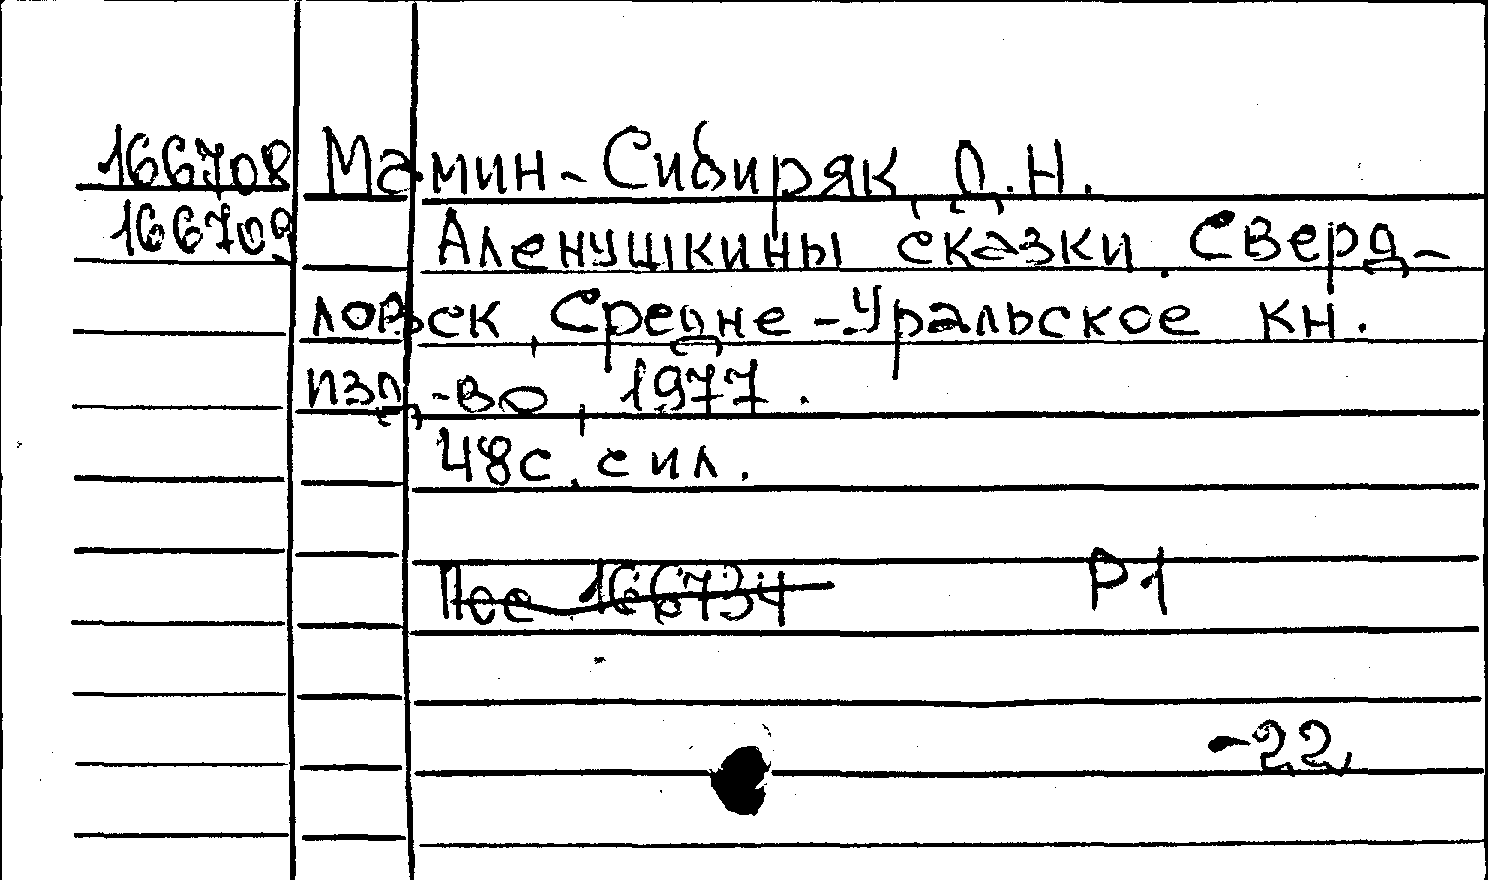 166708 Мамин-Сибиряк Д.Н.
166709 Аленушкины сказки. Сверд-
ловск, Средне-Уральское кн.
изд-во, 1977.
48с. с ил.
166734 Р1
-22